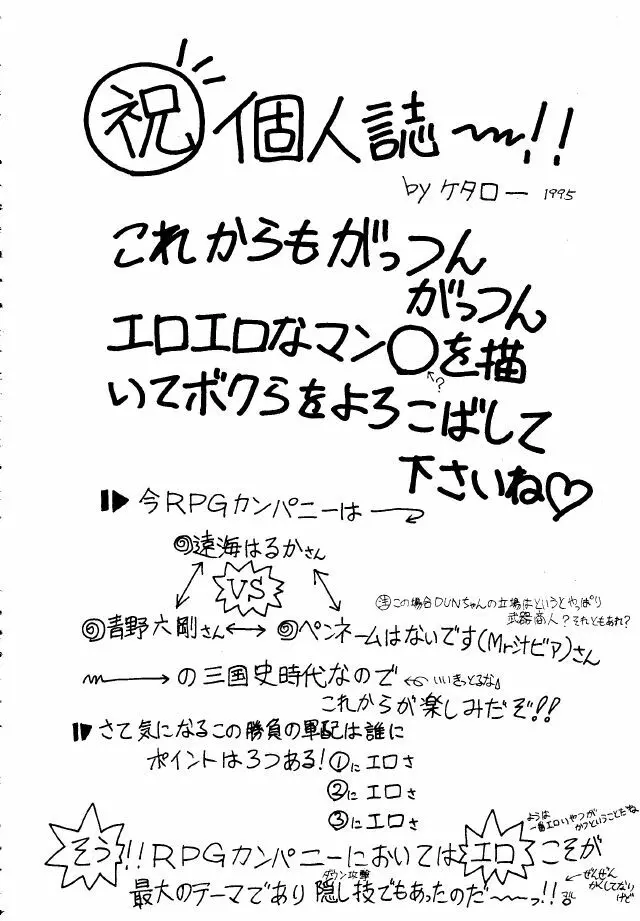 祝 個人誌〜!!
by ケタロー 1995
これからもがっつん
がっつん
エロエロなマン〇を描
?
いてボクらをよろこばして
下さいね♡
今RPGカンパニーは
遠海はるかさん
VS
注この場合DUNちゃんの立場はというとやっぱり
武器商人?それともあれ?
青野六剛さん↔ペンネームはないです(Mr汁ビア)さん
の三国史時代なので
←いいきっとるな。
これからが楽しみだぞ!!
さて気になるこの勝負の軍配は誰に
ポイントは3つある!①にエロさ
②にエロさ
③にエロさ
ようは
一番エロいやつが
かつということだね
そう!!RPGカンパニーにおいてはエロこそが
ダウン攻撃
最大のテーマであり隠し技でもあったのだ〜っ!!
←ぜんぜん
かくしてない
けど